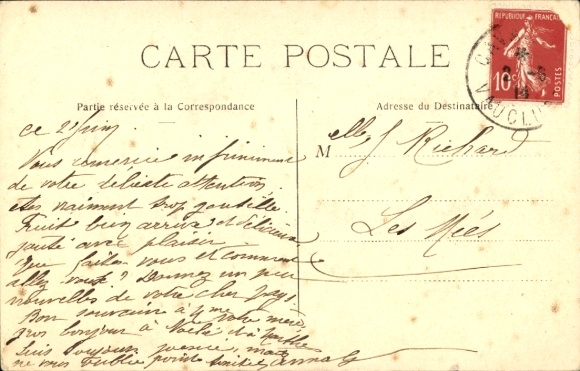 CARTE POSTALE
REPUBLIQUE FRANÇAISE
10c POSTES
VAUCLUSE
Partie réservée à la Correspondance
Adresse du Destinataire
ce 2 juin
Vous remercie infiniment
de votre délicate attention
êtes vraiment trop gentille.
Fruit bien arrivé et délicieux
goûté avec plaisir.
Que faites vous et comment
allez vous? Donnez un peu
nouvelles de votre cher pays.
Bon souvenir à Mme votre mère,
gros bonjour à
suis toujours mais
ne vous oublie point
Melle J. Richard
Les Mées